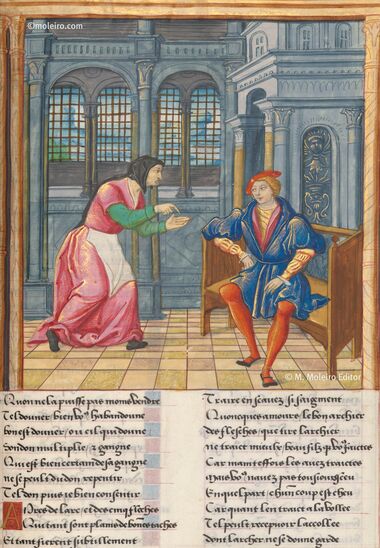 ©moleiro.com
© M. Moleiro Editor
Quon ne la puisse pas moins vendre
Tel donner bien vo9 habandonne
bon est donner / ou cil qui donne
son don multiplie / z gaigne
Qui est bien certain de sa gaigne
ne se peult du don repentir
Tel don puis ie bien consentir
Apres de larc / et des cinq flesches
Qui tant sont plaines de bonnes taches
Et tant fierent subtillement
Traire en scauez si saigement
Quoncques amours / le bon archier
des flesches / que tire larchier
ne traict mieulx / beau filz
Car maintesfois les auez traictes
mais vo9 nauez pas tousiours sceu
En quel part / chun coup est cheu
Car quant len traict a la vollee
Tel peult recepuoir la collee
dont larcher ne se donne garde